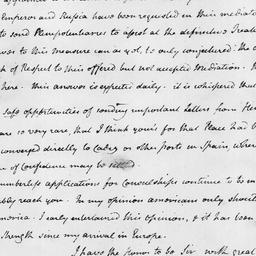 Emperor and Russia have been requested in their mediato
to send Plenipotentiaries to assist at the definitive Treati
swer to this measure can as yet, be only conjectured: the c
k of Respect to their offered but not accepted Mediation. It
here. this answer is expected daily. it is whispered that
safe opportunities of sending important Letters from Her
are so very rare, that I think your's for that Place had be
converged directly to Cadiz or other ports in Spain where
of Confidence may be
umberless applications for Consulships continue to be m
bably reach you. In my opinion americans only should
merica. I early entertained this opinion, & it has been
strength since my arrival in Europe.
I have the Honor to be Sir with great